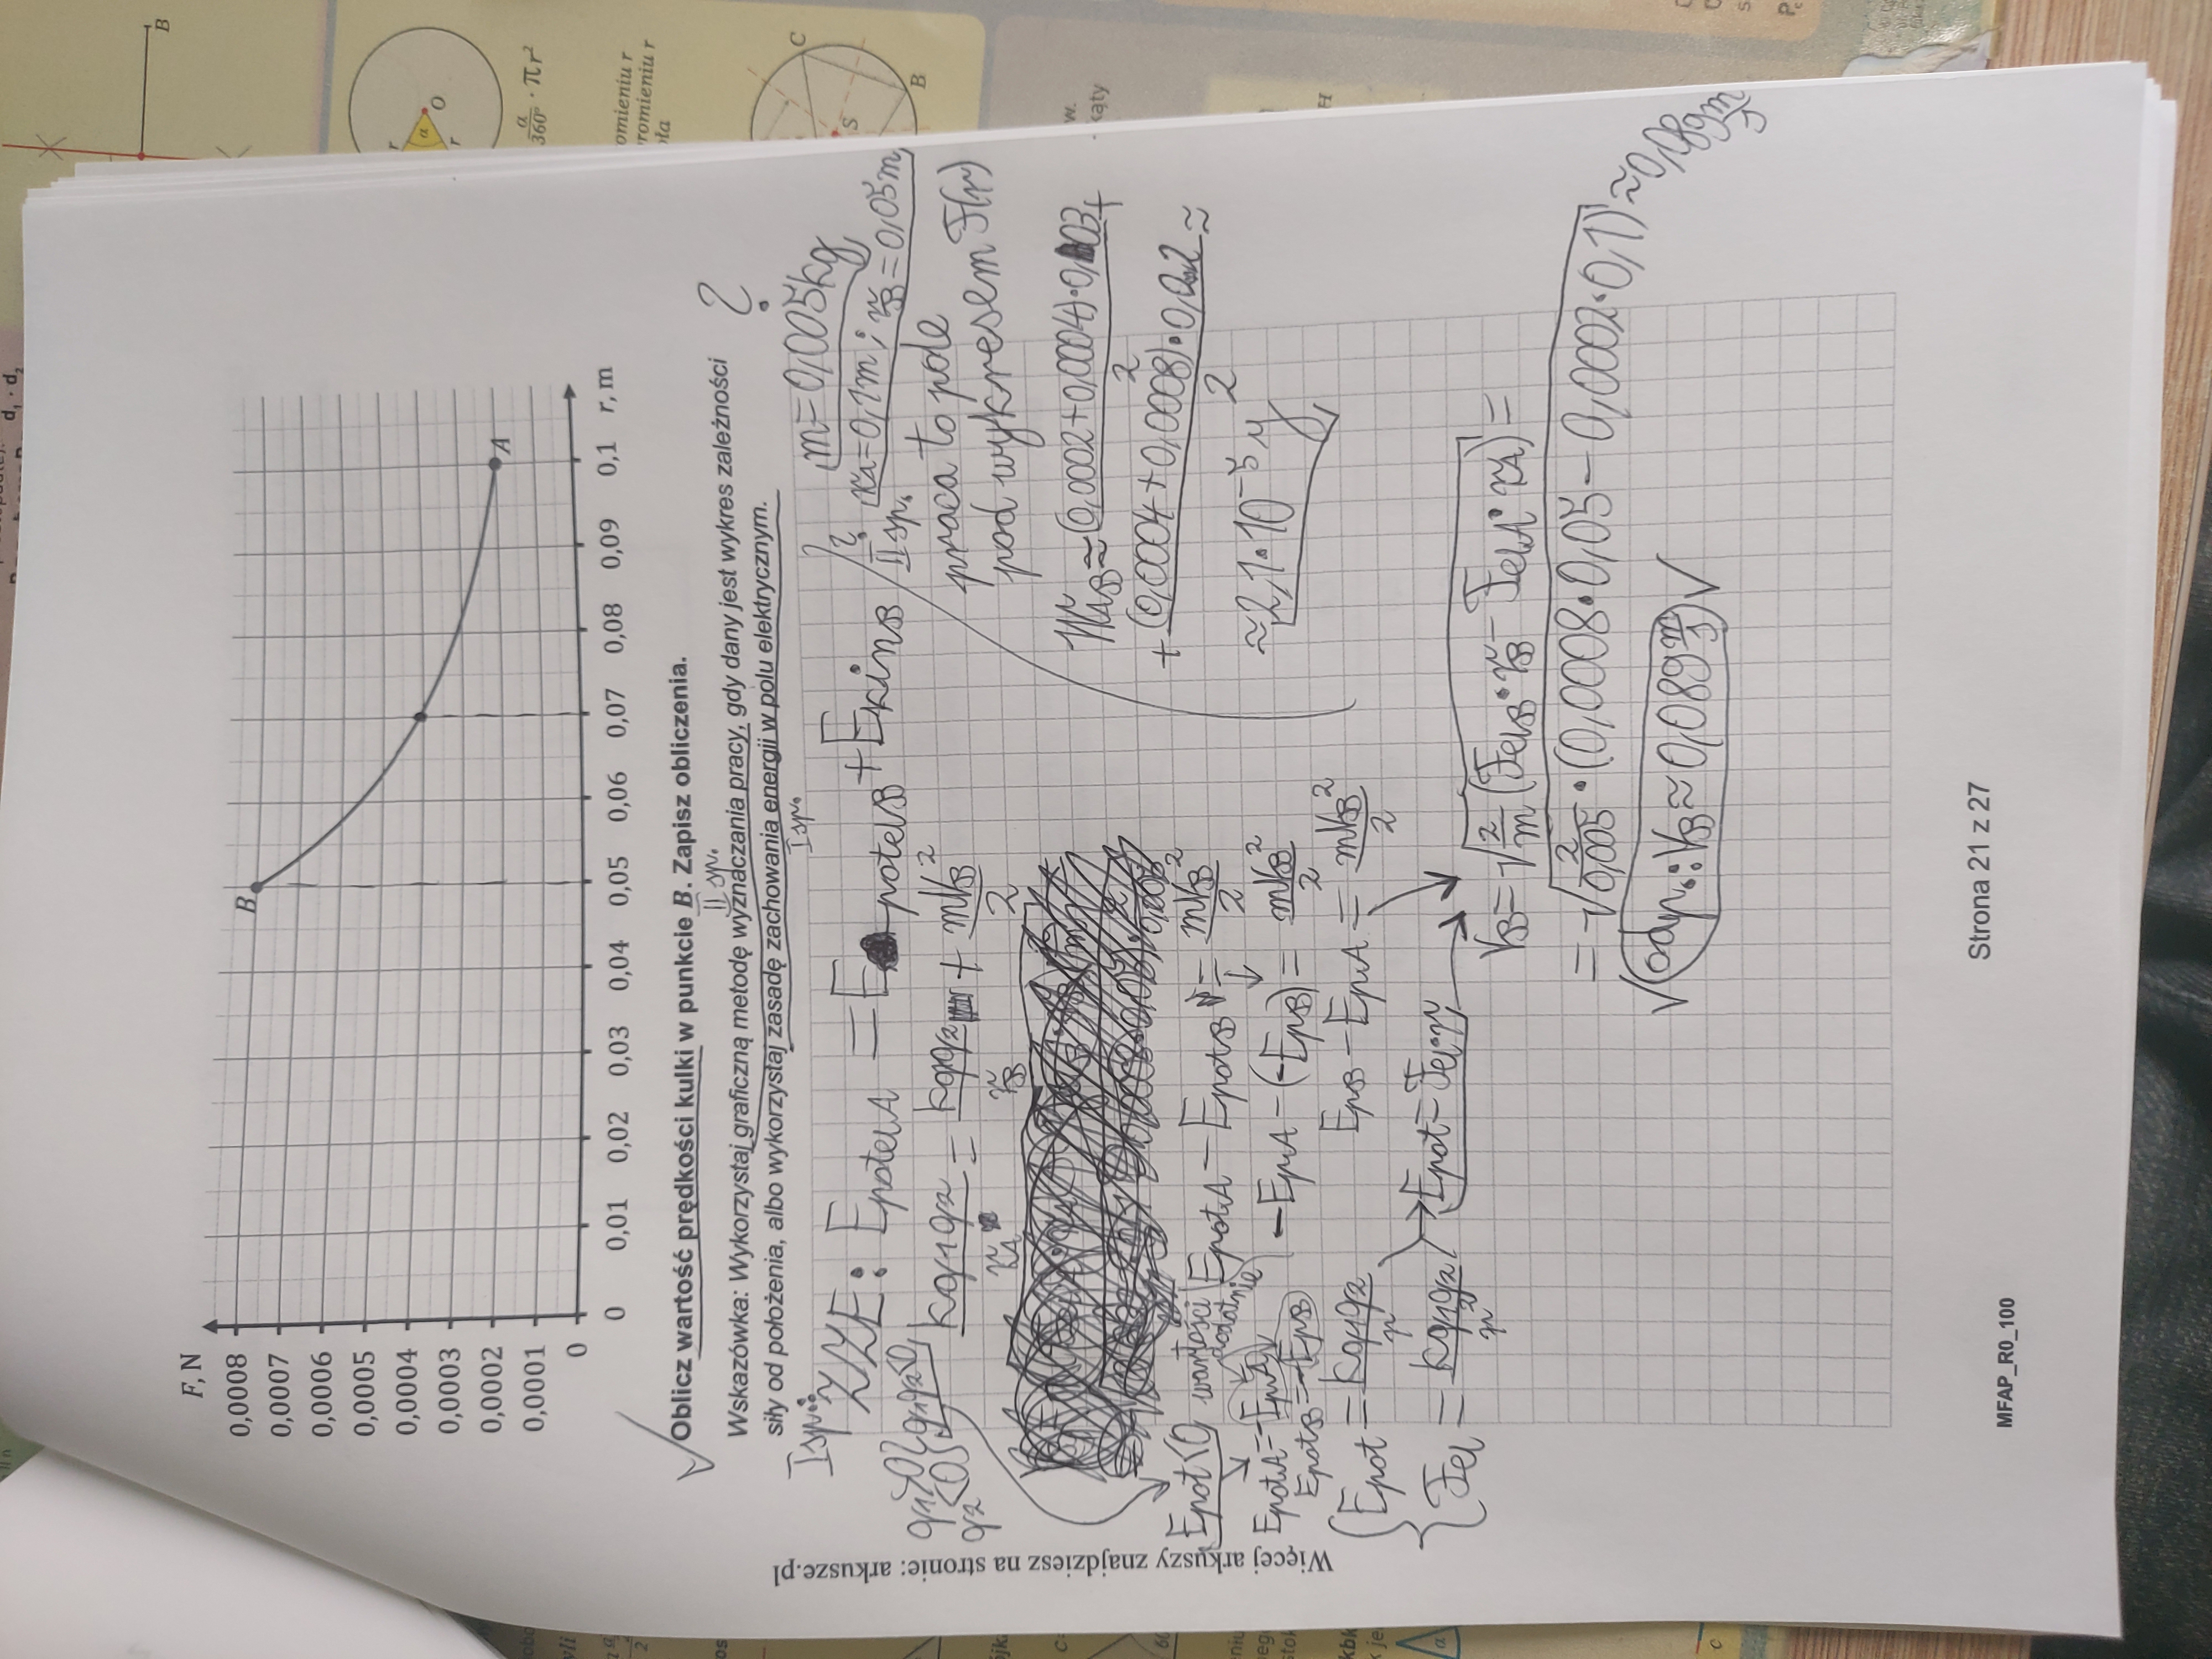 F, N
0,0008
0,0007
0,0006
0,0005
0,0004
0,0003
0,0002
0,0001
0
B
A
0 0,01 0,02 0,03 0,04 0,05 0,06 0,07 0,08 0,09 0,1 r, m
Oblicz wartość prędkości kulki w punkcie B. Zapisz obliczenia.
II sp.
Wskazówka: Wykorzystaj graficzną metodę wyznaczania pracy, gdy dany jest wykres zależności
siły od położenia, albo wykorzystaj zasadę zachowania energii w polu elektrycznym.
I sp.
?
I sp.:
m = 0,005kg
rA = 0,1m; rB = 0,05m
ZZE: EpotelA = EpotelB + EkinB
q1>0
q2<0
q1q2<0
kq1q2/rA = kq1q2/rB + mVB²/2
Epot<0
wartości dodatnie
EpotA - EpotB = mVB²/2
EpotA = -EpA
EpotB = -EpB
-EpA-(-EpB) = mVB²/2
EpB - EpA = mVB²/2
Epot = kq1q2/r
Fel = kq1q2/r²
Epot = Fel·r
VB = √2/m (FelB·rB - FelA·rA) =
= √2/0,005 · (0,0008·0,05 - 0,0002·0,1) ≈ 0,089 m/s
odp.: VB ≈ 0,089 m/s
II sp.
praca to pole
pod wykresem F(r)
WAB ≈ (0,0002+0,0004)·0,03/2 +
+ (0,0004+0,0008)·0,02/2 ≈
≈ 2,1·10⁻⁵ J
Strona 21 z 27
MFAP_R0_100
Więcej arkuszy znajdziesz na stronie: arkusze.pl
B
r
α
O
r
α/360° · πr²
omieniu r
romieniu r
C
S
B
kąty
H
d₁ · d₂